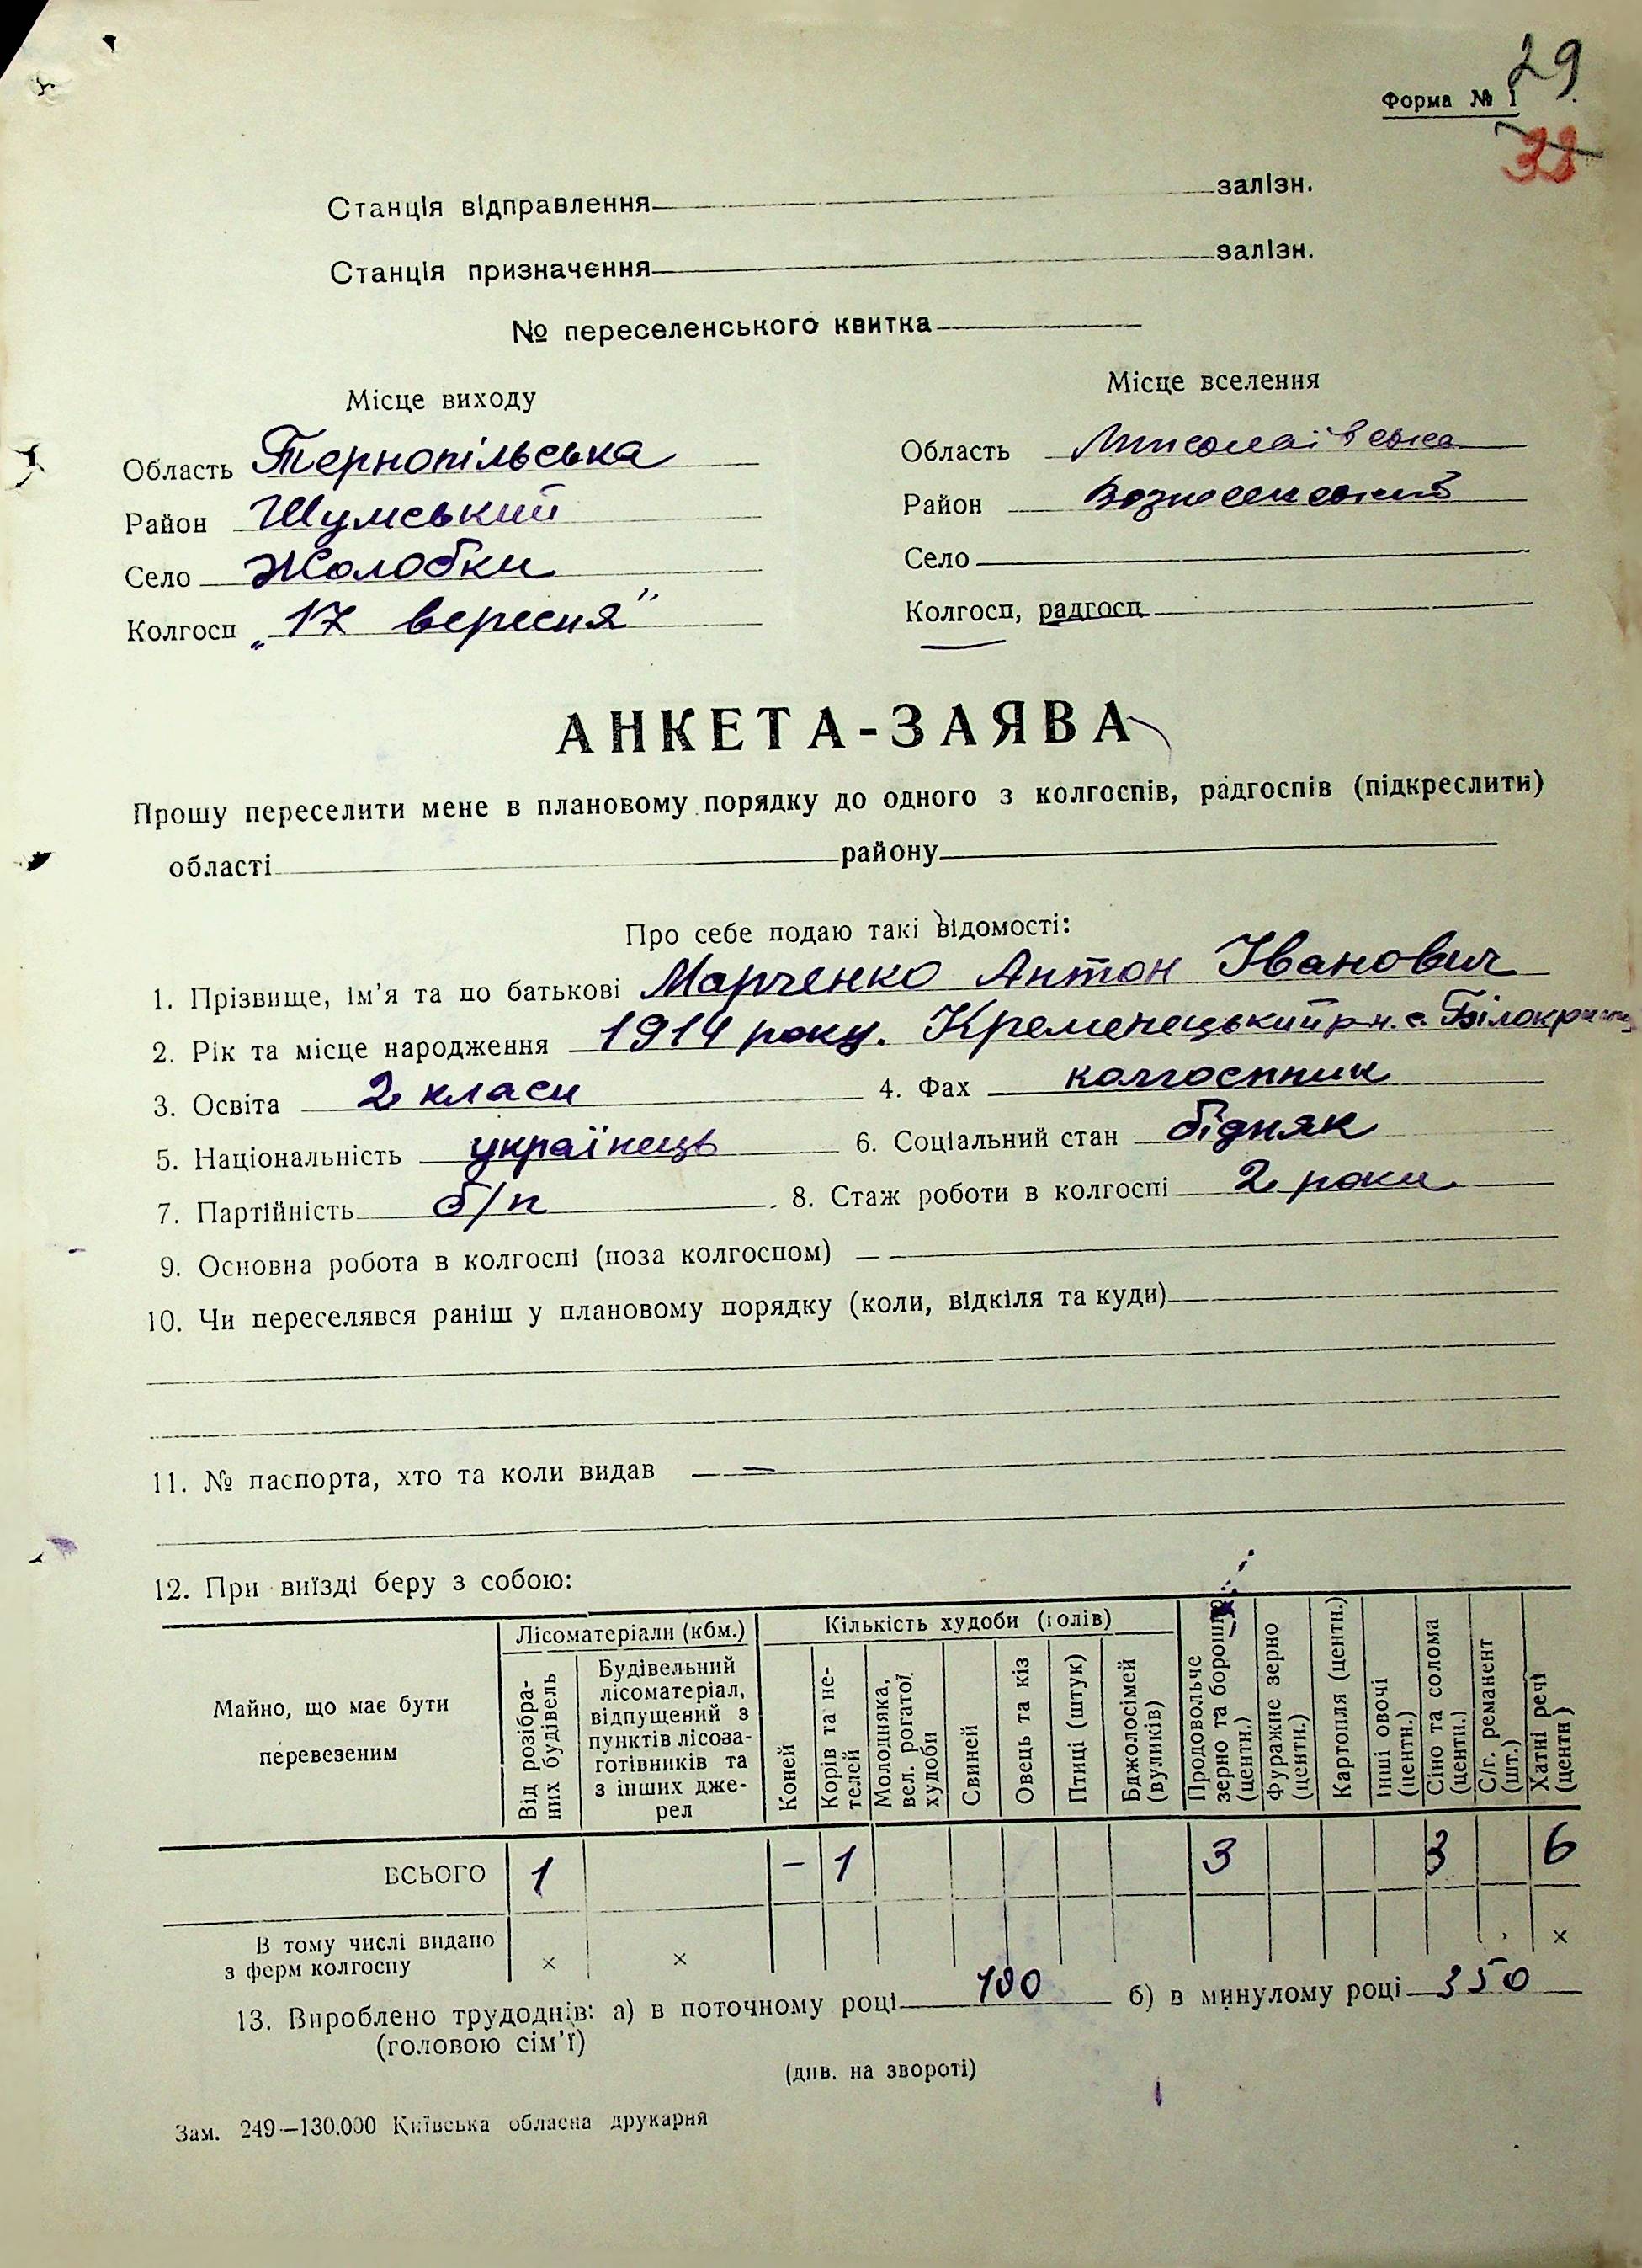 29
Форма № 1
38
Станція відправлення залізн.
Станція призначення залізн.
№ переселенського квитка
Місце виходу
Місце вселення
Область Тернопільська
Область Миколаївська
Район Шумський
Район Вознесенський
Село Жолобки
Село
Колгосп „17 вересня"
Колгосп, радгосп
АНКЕТА-ЗАЯВА
Прошу переселити мене в плановому порядку до одного з колгоспів, радгоспів (підкреслити)
області району
Про себе подаю такі відомості:
1. Прізвище, ім'я та по батькові Марченко Антон Іванович
2. Рік та місце народження 1914 року. Кременецький р-н. с.
3. Освіта 2 класи 4. Фах колгоспник
5. Національність українець 6. Соціальний стан бідняк
7. Партійність б/п 8. Стаж роботи в колгоспі 2 роки
9. Основна робота в колгоспі (поза колгоспом) —
10. Чи переселявся раніш у плановому порядку (коли, відкіля та куди)
11. № паспорта, хто та коли видав —
12. При виїзді беру з собою:
Майно, що має бути перевезеним
Лісоматеріали (кбм.)
Від розібраних будівель
Будівельний лісоматеріал, відпущений з пунктів лісозаготівників та з інших джерел
Кількість худоби (голів)
Коней
Корів та нетелей
Молодняка, вел. рогатої худоби
Свиней
Овець та кіз
Птиці (штук)
Бджолосімей (вуликів)
Продовольче зерно та борошно (центн.)
Фуражне зерно (центн.)
Картопля (центн.)
Інші овочі (центн.)
Сіно та солома (центн.)
С/г. реманент (шт.)
Хатні речі (центн)
ВСЬОГО 1 – 1 3 3 6
В тому числі видано
з ферм колгоспу × × ×
13. Вироблено трудоднів: а) в поточному році б) в минулому році 350
(головою сім'ї)
(див. на звороті)
Зам. 249—130.000 Київська обласна друкарня